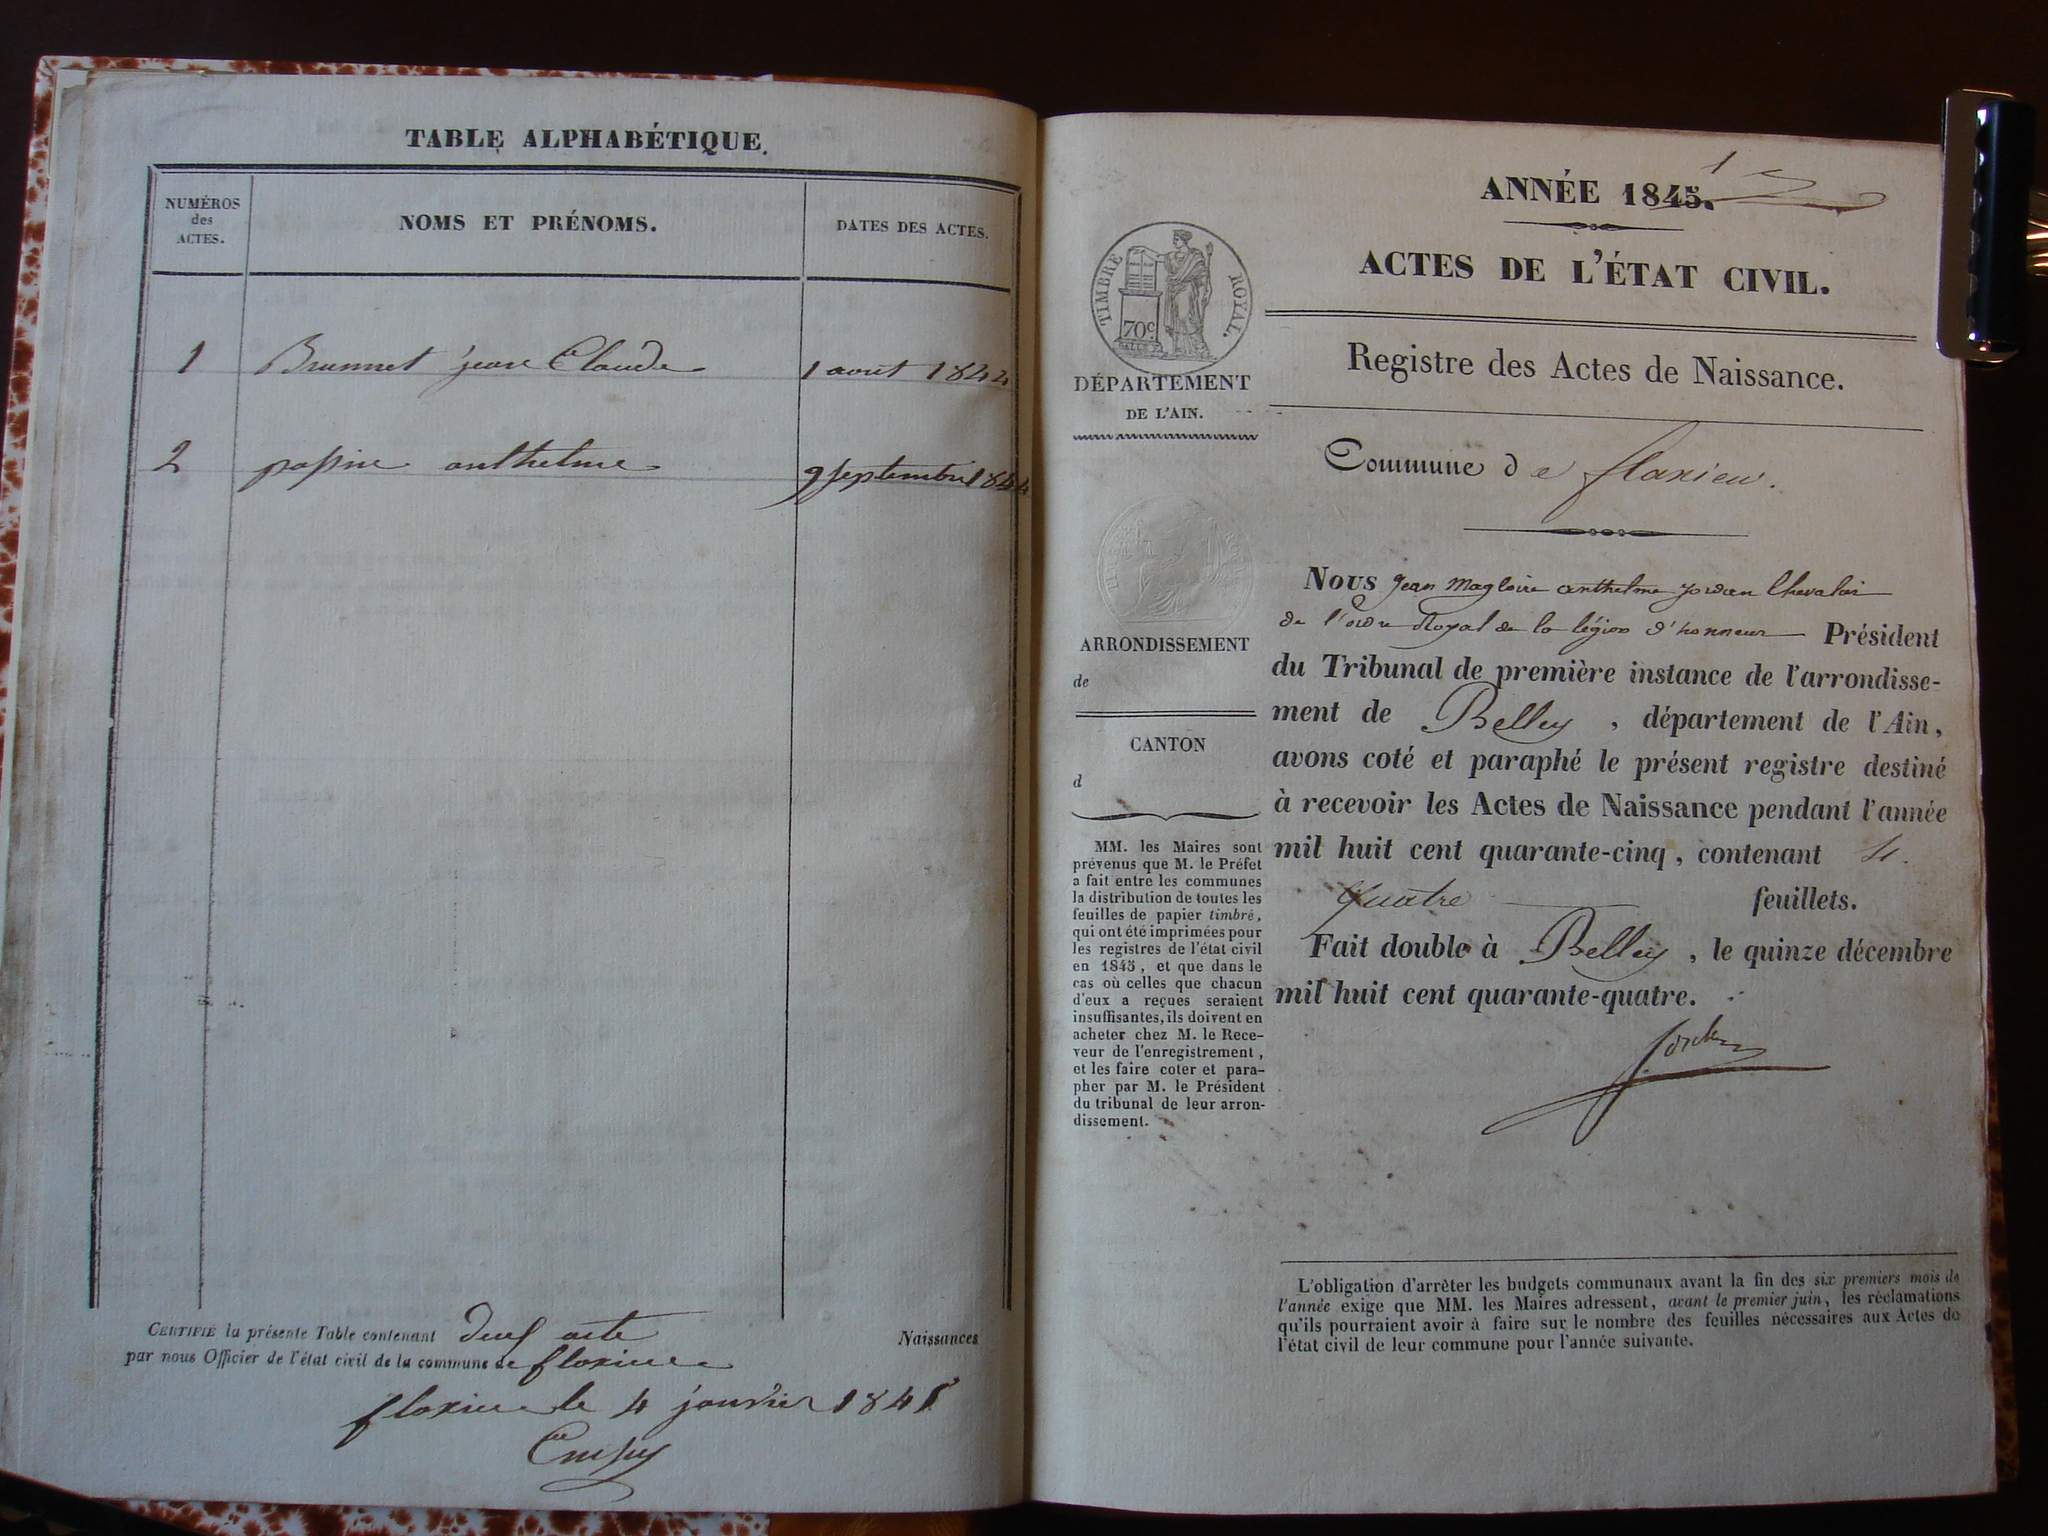 TABLE ALPHABÉTIQUE.
NUMÉROS
des
ACTES.
NOMS ET PRÉNOMS.
DATES DES ACTES.
1 Brunnet jean Claude 1 aout 1844
2 anthelme 9 septembre 1844
CERTIFIÉ la présente Table contenant acte Naissances
par nous Officier de l'état civil de la commune de flaxieu
flaxieu le 4 janvier 1845
1
ANNÉE 1845.
ACTES DE L'ÉTAT CIVIL.
TIMBRE ROYAL.
70c
DÉPARTEMENT
DE L'AIN.
Registre des Actes de Naissance.
Commune de flaxieu.
ARRONDISSEMENT
de
CANTON
d
MM. les Maires sont
prévenus que M. le Préfet
a fait entre les communes
la distribution de toutes les
feuilles de papier timbré,
qui ont été imprimées pour
les registres de l'état civil
en 1845, et que dans le
cas où celles que chacun
d'eux a reçues seraient
insuffisantes, ils doivent en
acheter chez M. le Rece-
veur de l'enregistrement,
et les faire coter et para-
pher par M. le Président
du tribunal de leur arron-
dissement.
Nous jean Magloire anthelme jordan Chevalier
de l'ordre Royal de la légion d'honneur Président
du Tribunal de première instance de l'arrondisse-
ment de Belley, département de l'Ain,
avons coté et paraphé le présent registre destiné
à recevoir les Actes de Naissance pendant l'année
mil huit cent quarante-cinq, contenant 4.
quatre feuillets.
Fait double à Belley, le quinze décembre
mil huit cent quarante-quatre.
L'obligation d'arrêter les budgets communaux avant la fin des six premiers mois de
l'année exige que MM. les Maires adressent, avant le premier juin, les réclamations
qu'ils pourraient avoir à faire sur le nombre des feuilles nécessaires aux Actes de
l'état civil de leur commune pour l'année suivante.